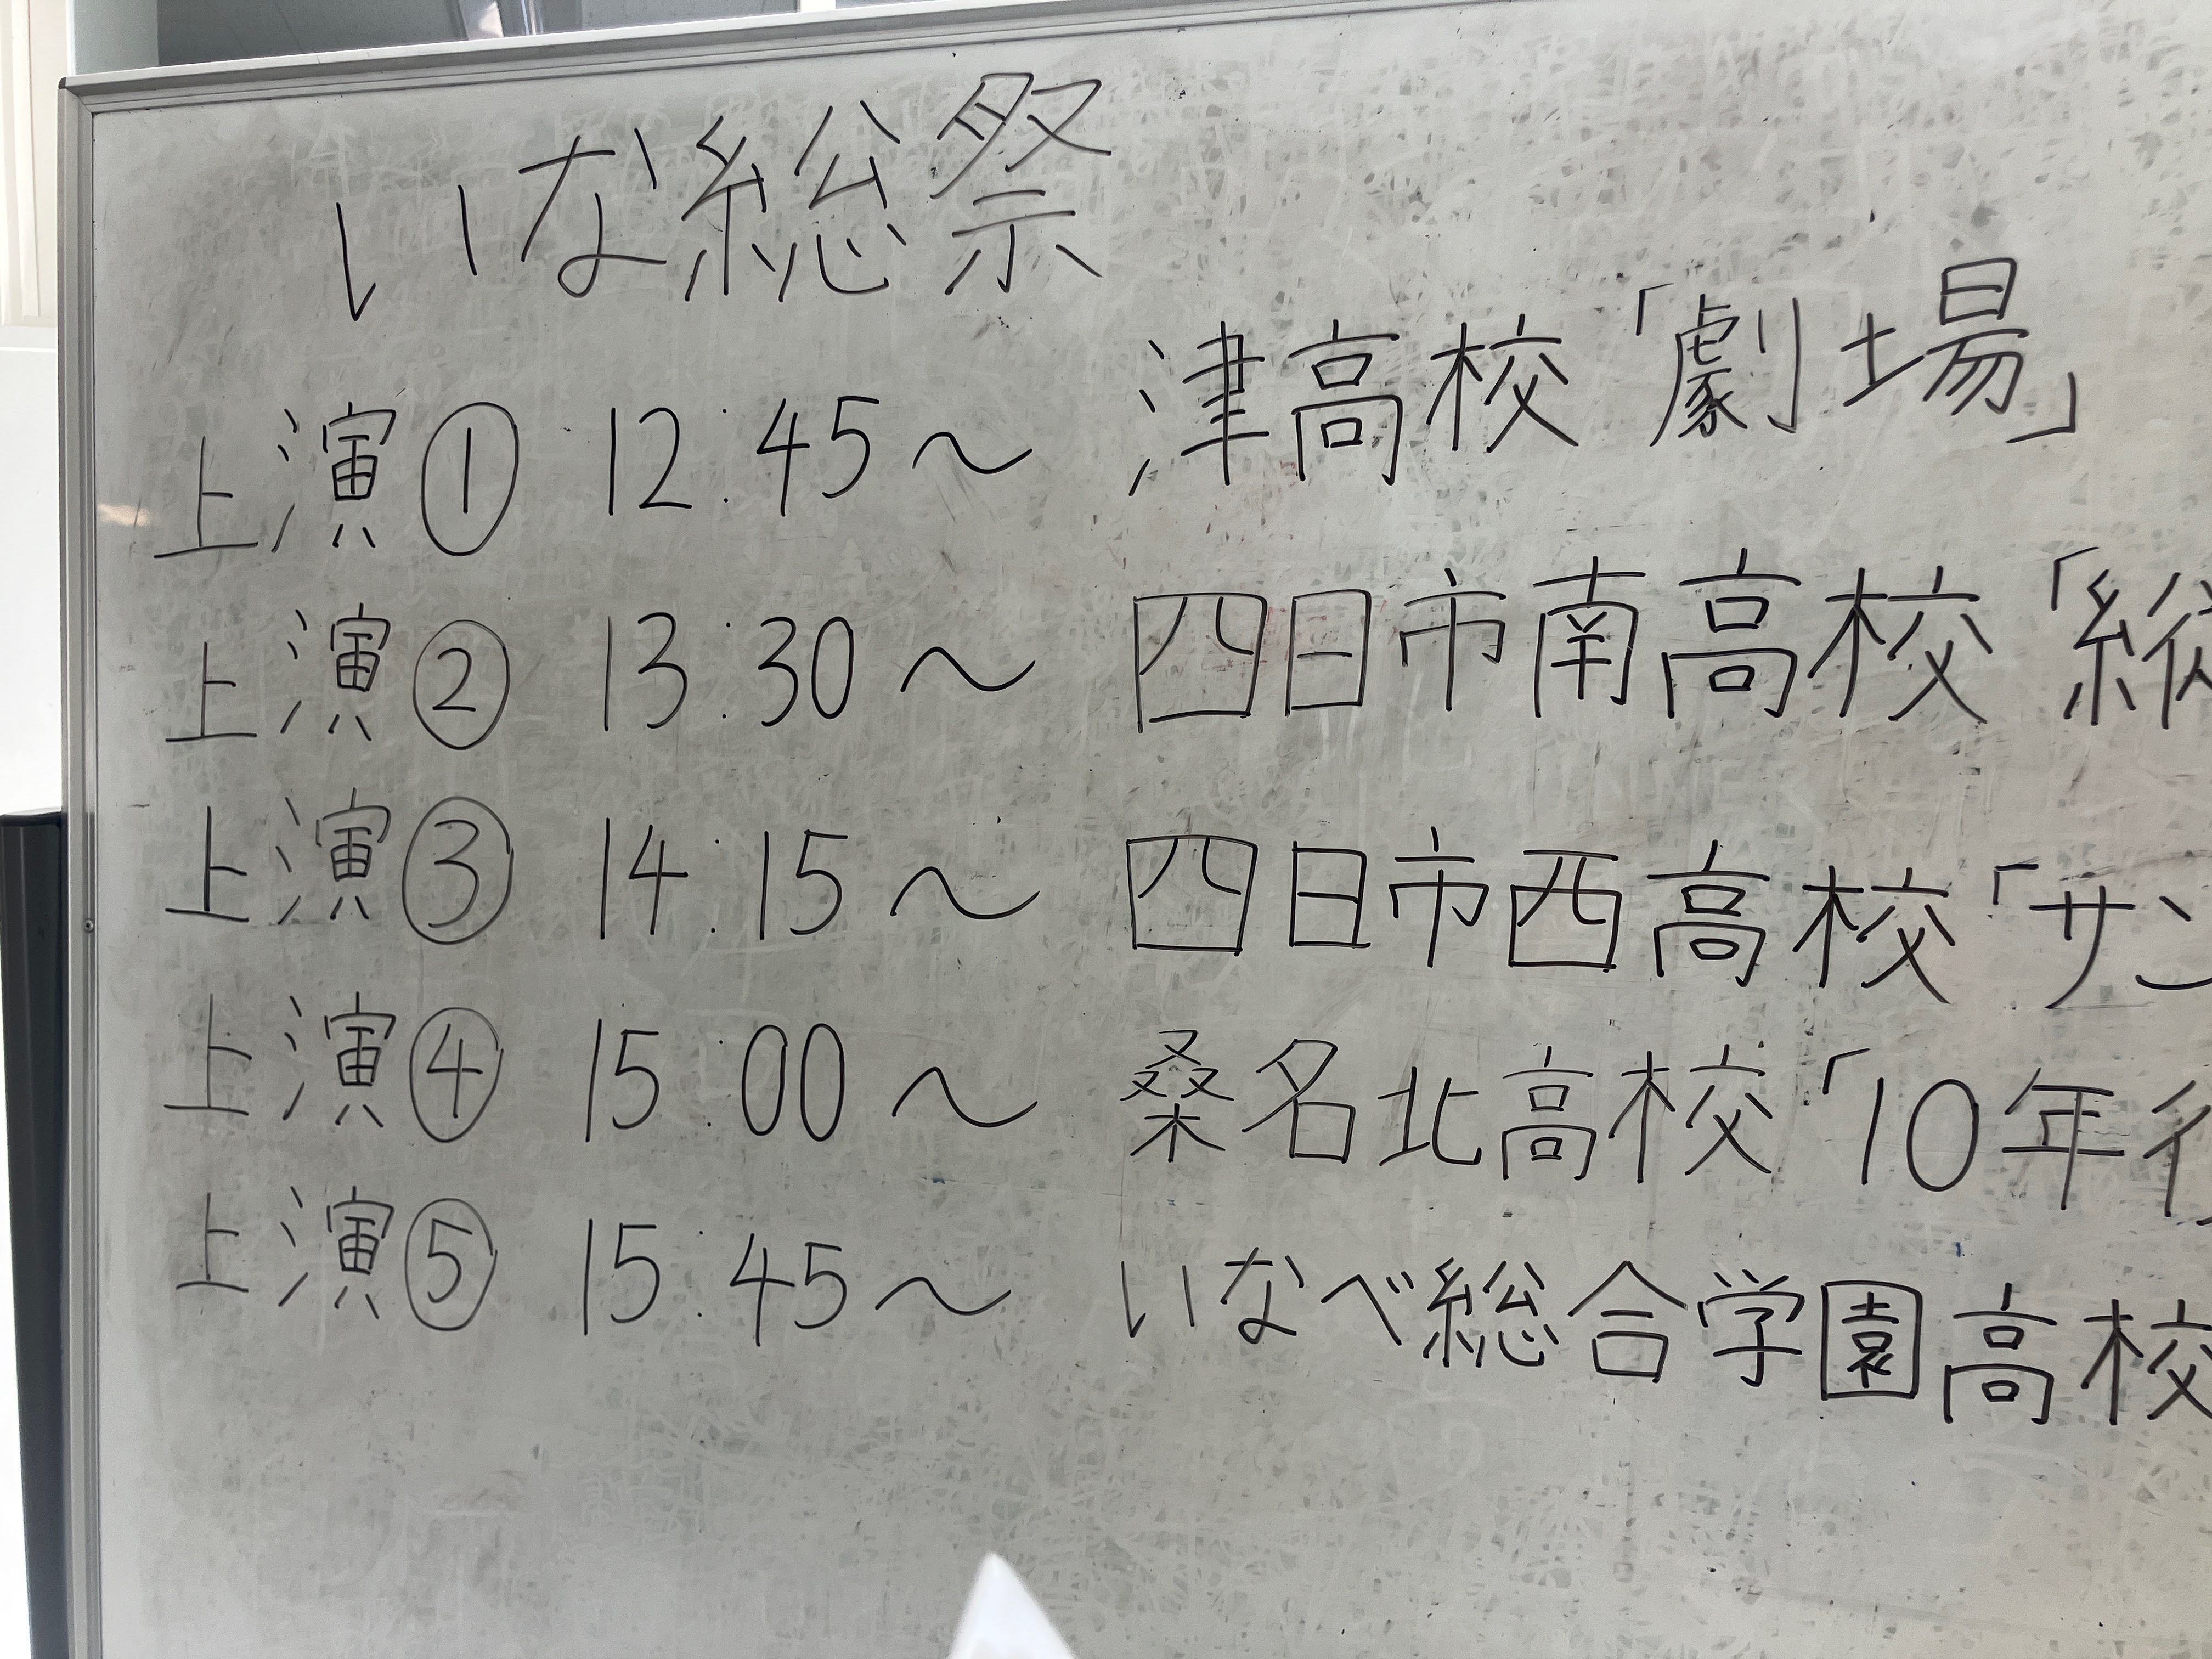 いな総祭
上演① 12:45〜 津高校「劇場」
上演② 13:30〜 四日市南高校「
上演③ 14:15〜 四日市西高校「サン
上演④ 15:00〜 桑名北高校「10年
上演⑤ 15:45〜 いなべ総合学園高校